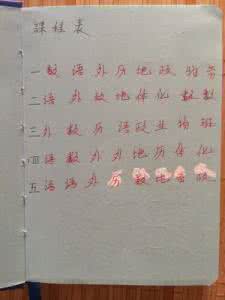 课程表
一数语外历地政物劳
二语外政地体化数数
三外数历语政生物班
四语数外外地历体化
五语语外历数地音政